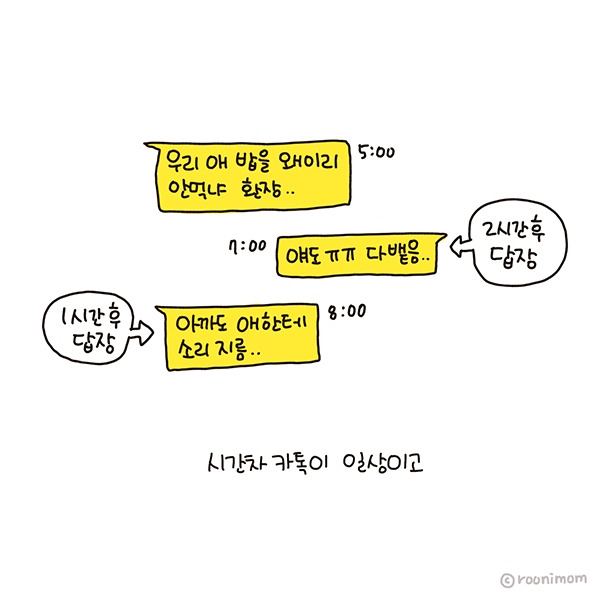 우리 애 밥을 왜이리
안먹냐 환장..
5:00
7:00
얘도 ㅠㅠ 다뱉음..
2시간 후
답장
1시간 후
답장
아까도 애한테
소리 지름..
8:00
시간차 카톡이 일상이고
©roonimom